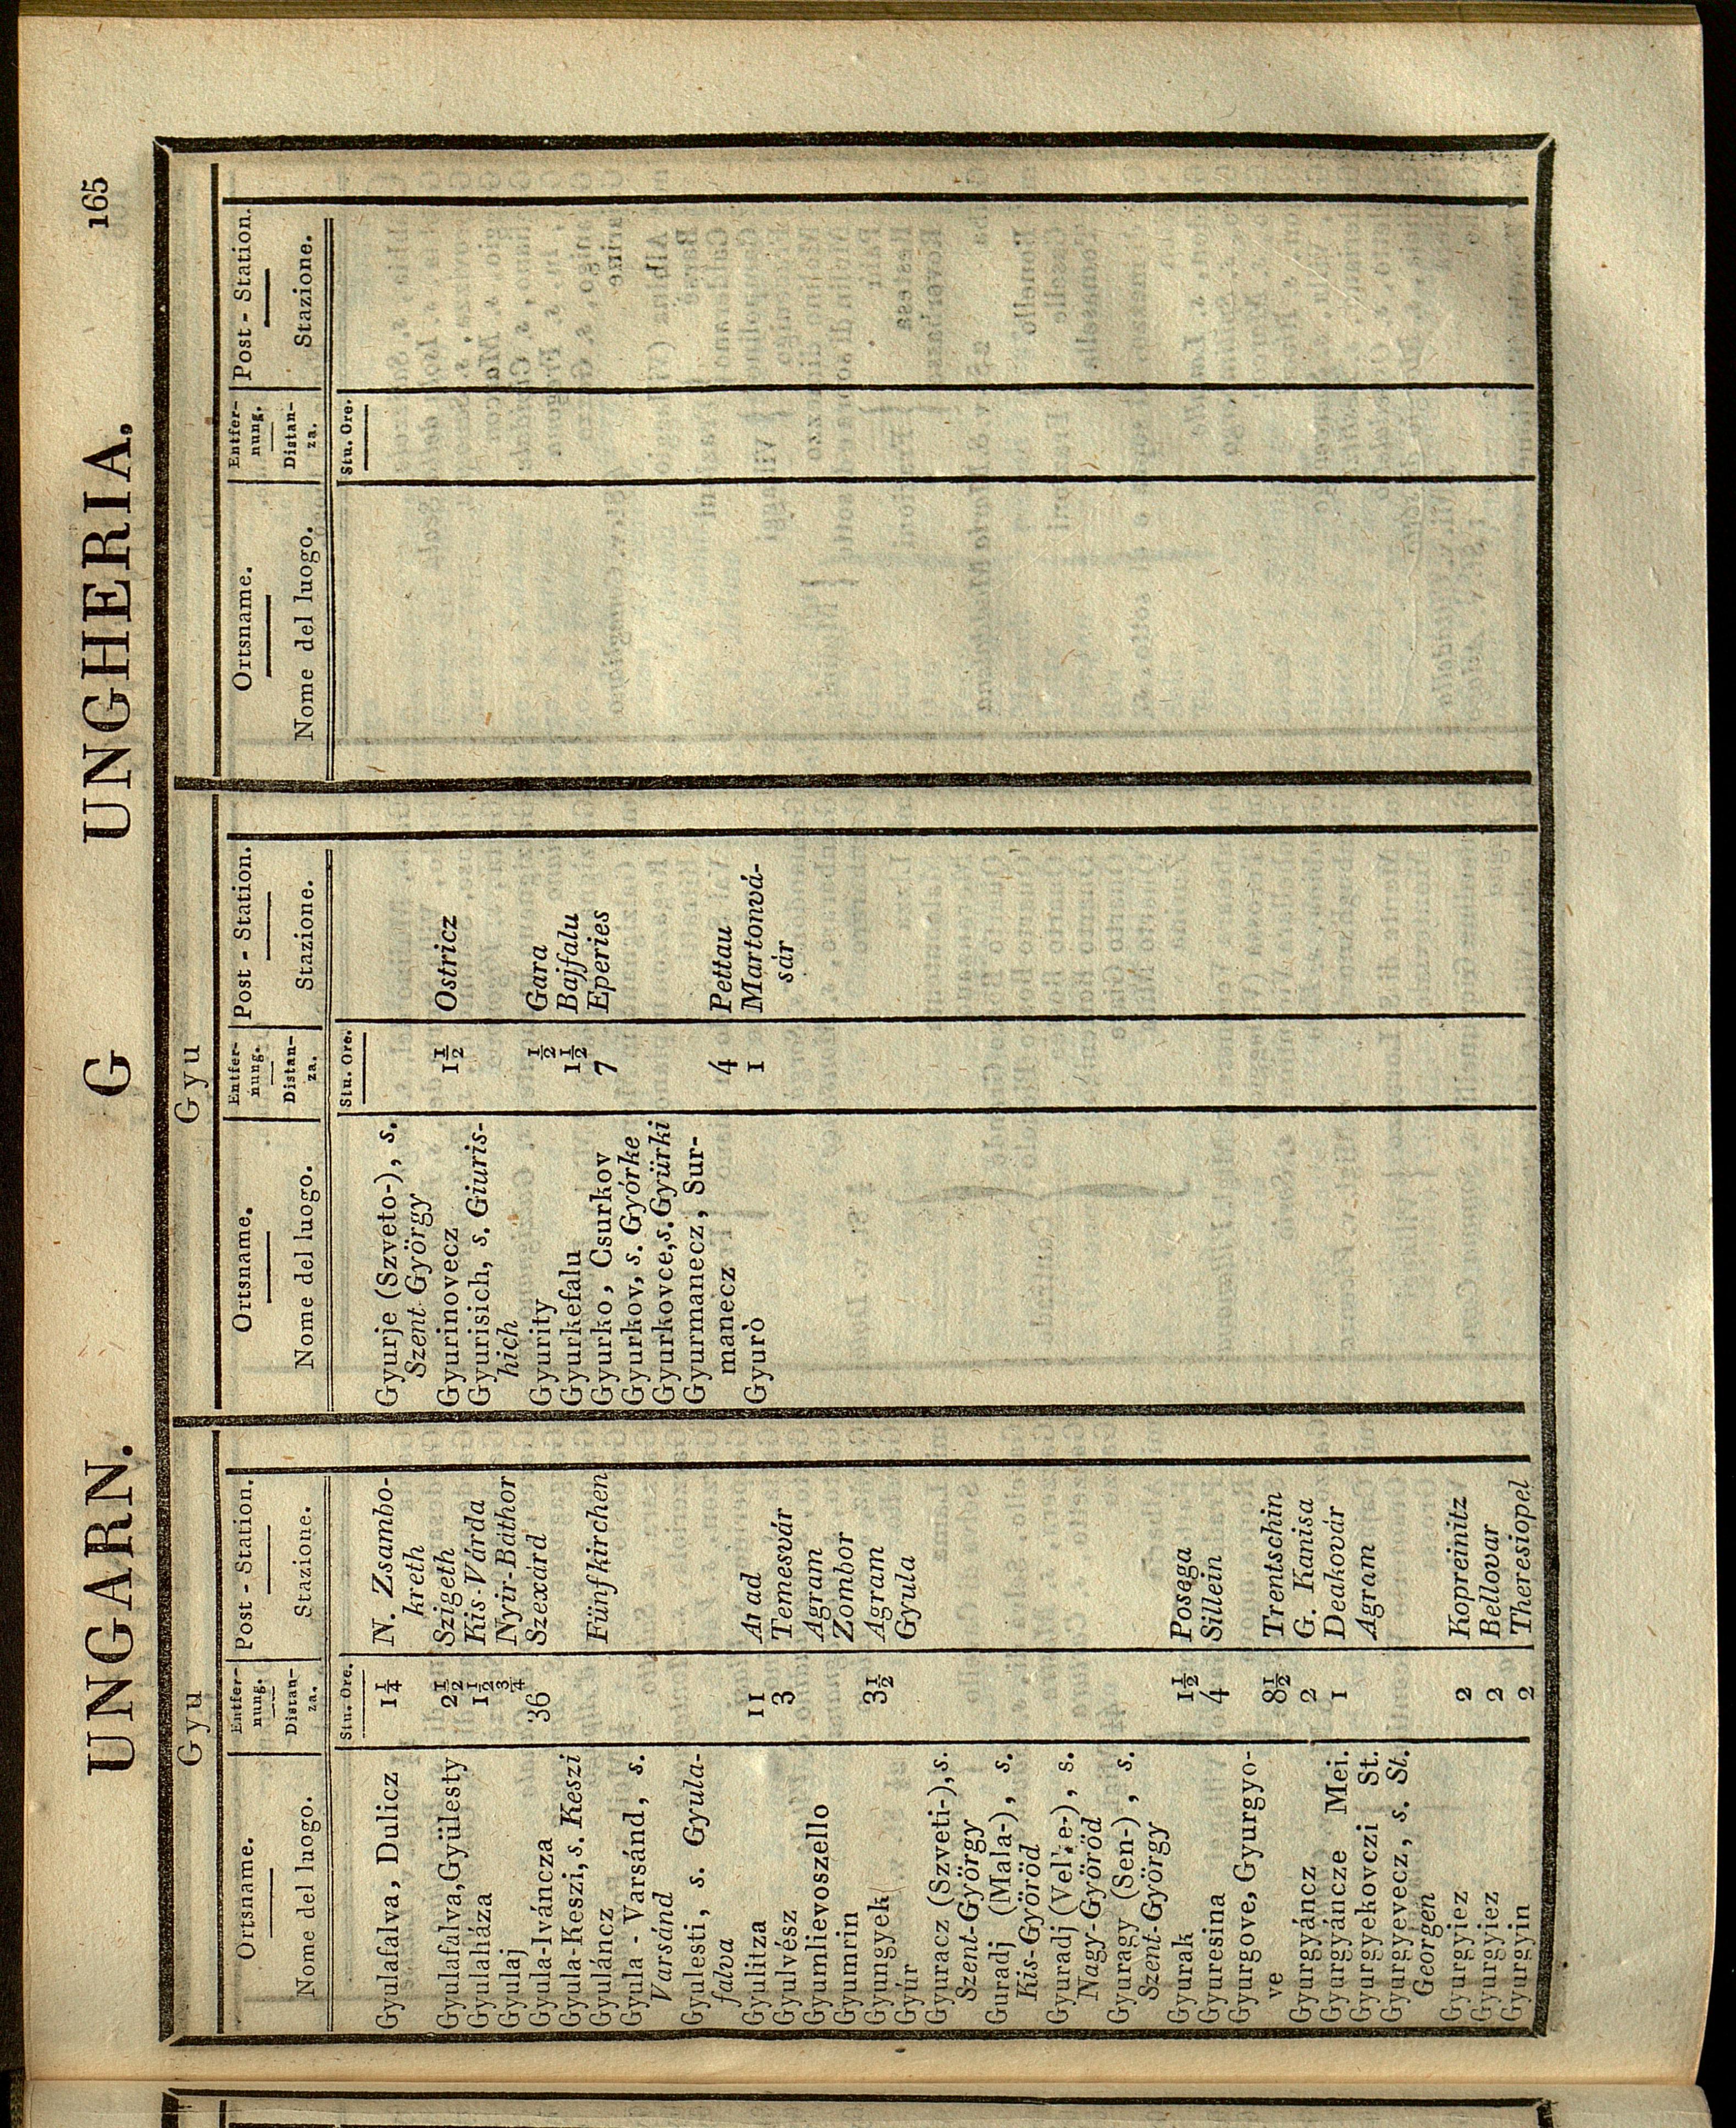 UNGARN. G UNGHERIA. 165
Gyu
Ortsname. Entfer- Post - Station.
nung.
Nome del luogo. Distan- Stazione.
za.
Stu. Ore.
Gyulafalva, Dulicz 1¼ N. Zsambo-
kreth
Gyulafalva, Gyülesty 2½ Szigeth
Gyulaháza 1½ Kis-Várda
Gyulaj ¾ Nyir-Báthor
Gyula-Iváncza 36 Szexárd
Gyula-Keszi, s. Keszi
Gyuláncz Fünfkirchen
Gyula - Varsánd, s.
Varsánd
Gyulesti, s. Gyula-
falva
Gyulitza 11 Arad
Gyulvész 3 Temesvár
Gyumlievoszello Agram
Gyumrin Zombor
Gyungyek 3½ Agram
Gyúr Gyula
Gyuracz (Szveti-), s.
Szent-György
Guradj (Mala-), s.
Kis-Györöd
Gyuradj (Velke-), s.
Nagy-Györöd
Gyuragy (Sen-), s.
Szent-György
Gyurak 1½ Posega
Gyuresina 4 Sillein
Gyurgove, Gyurgyo-
ve 8½ Trentschin
Gyurgyáncz 2 G. Kanisa
Gyurgyáncze Mei. 1 Deakovár
Gyurgyekovczi St. Agram
Gyurgyevecz, s. St.
Georgen
Gyurgyiez 2 Kopreinitz
Gyurgyiez 2 Bellovar
Gyurgyin 2 Theresiopel
Gyu
Ortsname. Entfer- Post - Station.
nung.
Nome del luogo. Distan- Stazione.
za.
Stu. Ore.
Gyurje (Szveto-), s.
Szent György
Gyurinovecz 1½ Ostricz
Gyurisich, s. Giuris-
hich
Gyurity ½ Gara
Gyurkefalu 1½ Bajfalu
Gyurko, Csurkov 7 Eperies
Gyurkov, s. Gyórke
Gyurkovce, s. Gyürki
Gyurmanecz, Sur-
manecz 4 Pettau
Gyurò 1 Martonvá-
sár
Ortsname. Entfer- Post - Station.
nung.
Nome del luogo. Distan- Stazione.
za.
Stu. Ore.